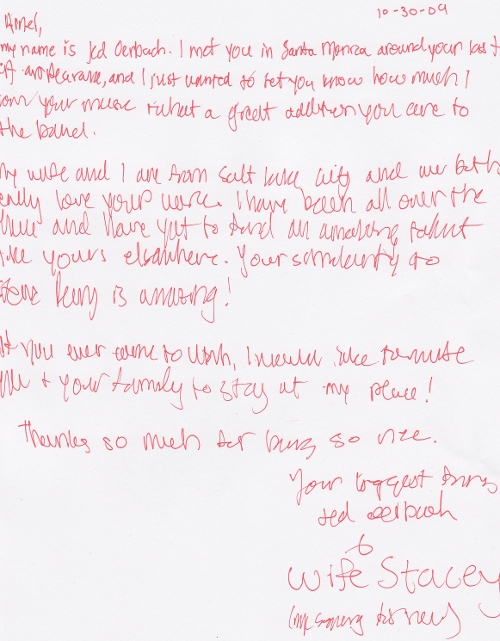 10-30-09
Arnel,
my name is Jed Oerbach. I met you in Santa Monica around your last
appearance, and I just wanted to let you know how much I
your music + what a great addition you are to
the band.
my wife and I are from Salt Lake City and we both
really love your work. I have been all over the
and have yet to find an amazing talent
like yours elsewhere. Your similarity to
Steve Perry is amazing!
If you ever come to Utah, I would like to invite
you + your family to stay at my place!
Thanks so much for being so nice.
Your biggest fans
Jed Oerbach
&
wife Stacey